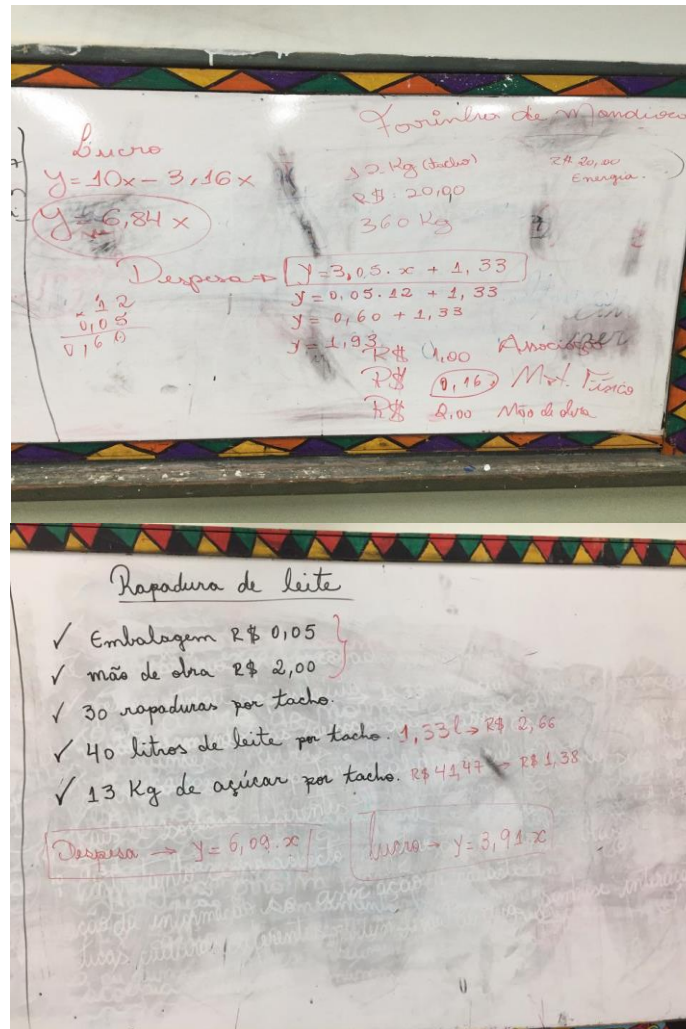 Farinha de Mandioca
Lucro
y=10x-3,16x
y=6,84x
12 Kg (tacho)
R$. 20,00
360 Kg
R$ 20,00
Energia.
Despesa → y=3,05.x + 1,33
y=0,05.12 + 1,33
y=0,60 + 1,33
y=1,93
12
0,05
0,60
R$ 1,00 Associação
R$ 0,16 Mat. Físico
R$ 2,00 Mão de obra
Rapadura de leite
✓ Embalagem R$ 0,05
✓ mão de obra R$ 2,00
✓ 30 rapaduras por tacho.
✓ 40 litros de leite por tacho. 1,33l → R$ 2,66
✓ 13 Kg de açúcar por tacho. R$ 41,47 → R$ 1,38
Despesa → y=6,09.x
Lucro → y=3,91.x